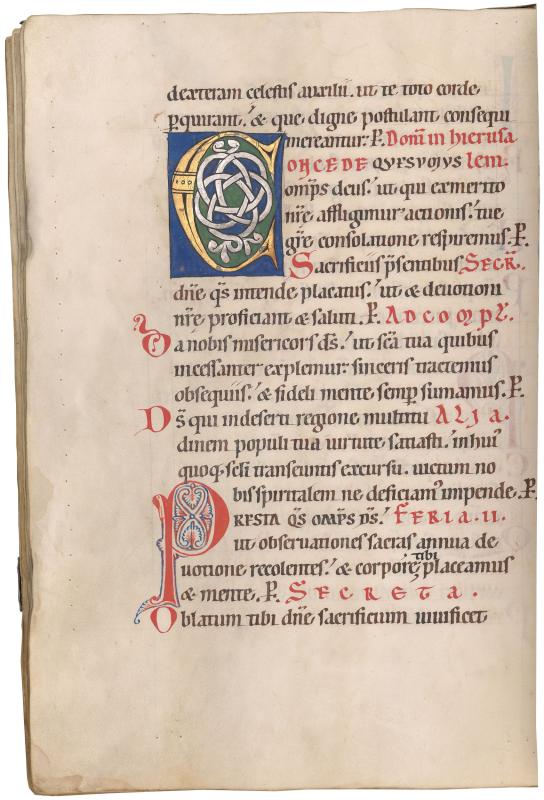 dexteram celestis auxilii. ut te toto corde
pquirant. & que digne postulant consequi
mereantur. P. Dom̄ in hierusa
CONCEDE QUESUMUS lem.
omps deus. ut qui ex merito
nr̄e affligimur actionis. tue
gr̄e consolatione respiremus. P.
Sacrificiis p̄sentibus SECR̄.
dn̄e qs̄ intende placatus. ut & deuotioni
nr̄e proficiant & saluti. P. AD COMPL̄.
Da nobis misericors ds̄. ut scā tua quibus
incessanter explemur sinceris tractemus
obsequiis. & fideli mente semp sumamus. P.
Ds̄ qui in deserti regione multitu ALIA.
dinem populi tua uirtute satiasti. in hui'
quoq; scli transeuntis excursu. uictum no
bis spiritalem ne deficiam' impende. P.
PRESTA qs̄ OMPS DS̄. FERIA. II.
ut obseruationes sacras annua de
uotione recolentes. & corpore tibi placeamus
& mente. P. SECRETA.
Oblatum tibi dn̄e sacrificium uiuificet